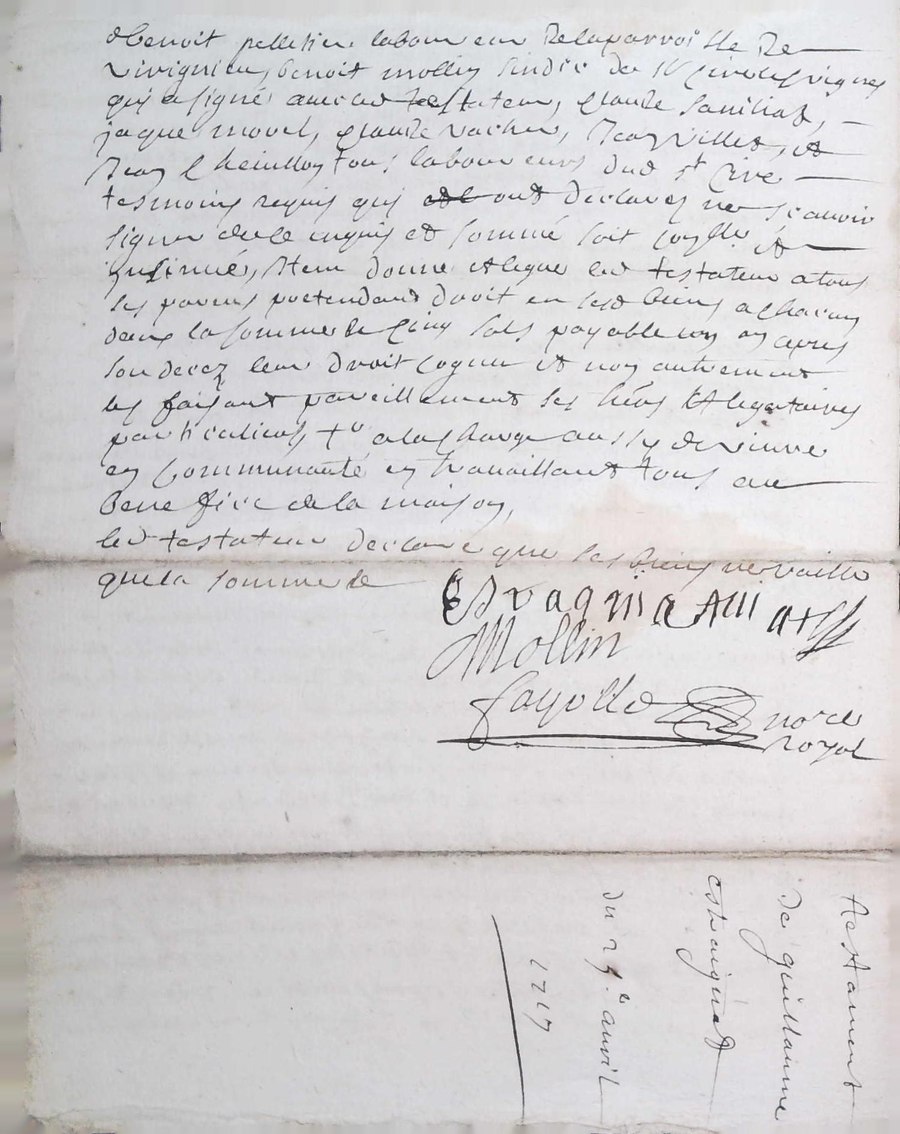 Benoit pelletier laboureur De la parroisse De
vivignieu, benoit mollin sindic de St Cire les vignes
qui a signé avec led testateur, glaude
jaque morel, glaude vacher, Jean villet, et
Jean tous laboureurs dud st Cire
tesmoins requis qui ont declarez ne scavoir
signer de ce enquis et sommé soit et
insinué, Item donne et legue led testateur a tous
ses parens pretendans droit en sesd biens a chacun
deux la somme de Cinq sols payable un an apres
son decez leur droit cognu et non autrement
les faisant pareillement ses hers et legataires
particuliers, a la charge aussy de vivre
en Communauté en travaillant tous au
benefice de la maison,
led testateur declare que ses biens ne vaille
que la somme de
Mollin
fayolle nore
royal
testament
de guillaume
estraignat
du avril
1717